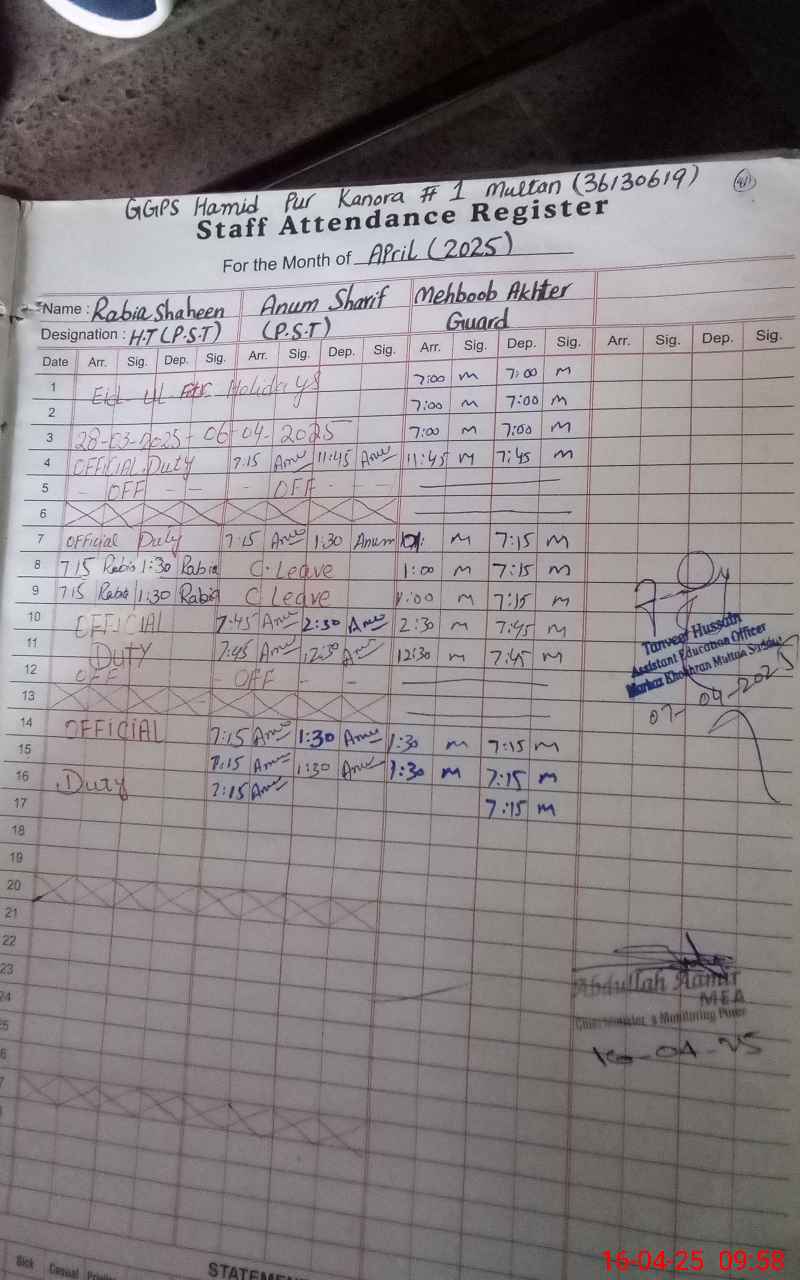 GGPS Hamid Pur Kanora # 1 Multan (36130619)
Staff Attendance Register
For the Month of APril (2025)
Name : Rabia Shaheen Anum Sharif Mehboob Akhter
Designation : H.T (P.S.T) (P.S.T) Guard
Date Arr. Sig. Dep. Sig. Arr. Sig. Dep. Sig. Arr. Sig. Dep. Sig. Arr. Sig. Dep. Sig.
1 Eid ul Holidays 7:00 m 7:00 m
2 7:00 m 7:00 m
3 28-03-2025 - 06-04-2025 7:00 m 7:00 m
4 OFFICIAL Duty 7:15 11:45 11:45 m 7:45 m
5 - OFF - - - OFF - -
6
7 Official Duty 7:15 1:30 Anum m 7:15 m
8 7 15 Rabia 1:30 Rabia C. Leave 1:00 m 7:15 m
9 7 15 Rabia 1:30 Rabia C Leave 1:00 m 7:15 m
10 OFFICIAL 7:45 2:30 2:30 m 7:45 m
11 DUTY 7:45 12:30 12:30 m 7:45 m
12 OFF - OFF -
13
14 OFFICIAL 7:15 1:30 1:30 m 7:15 m
15 7:15 1:30 1:30 m 7:15 m
16 Duty 7:15 7:15 m
17
18
19
20
21
22
23
24
Tanveer Hussain
Assistant Education Officer
Markaz Khokhran Multan Saddar
07-04-2025
Abdullah Aamir
MEA
16-04-25
Sick Casual
STATEMEN
16-04-25 09:58